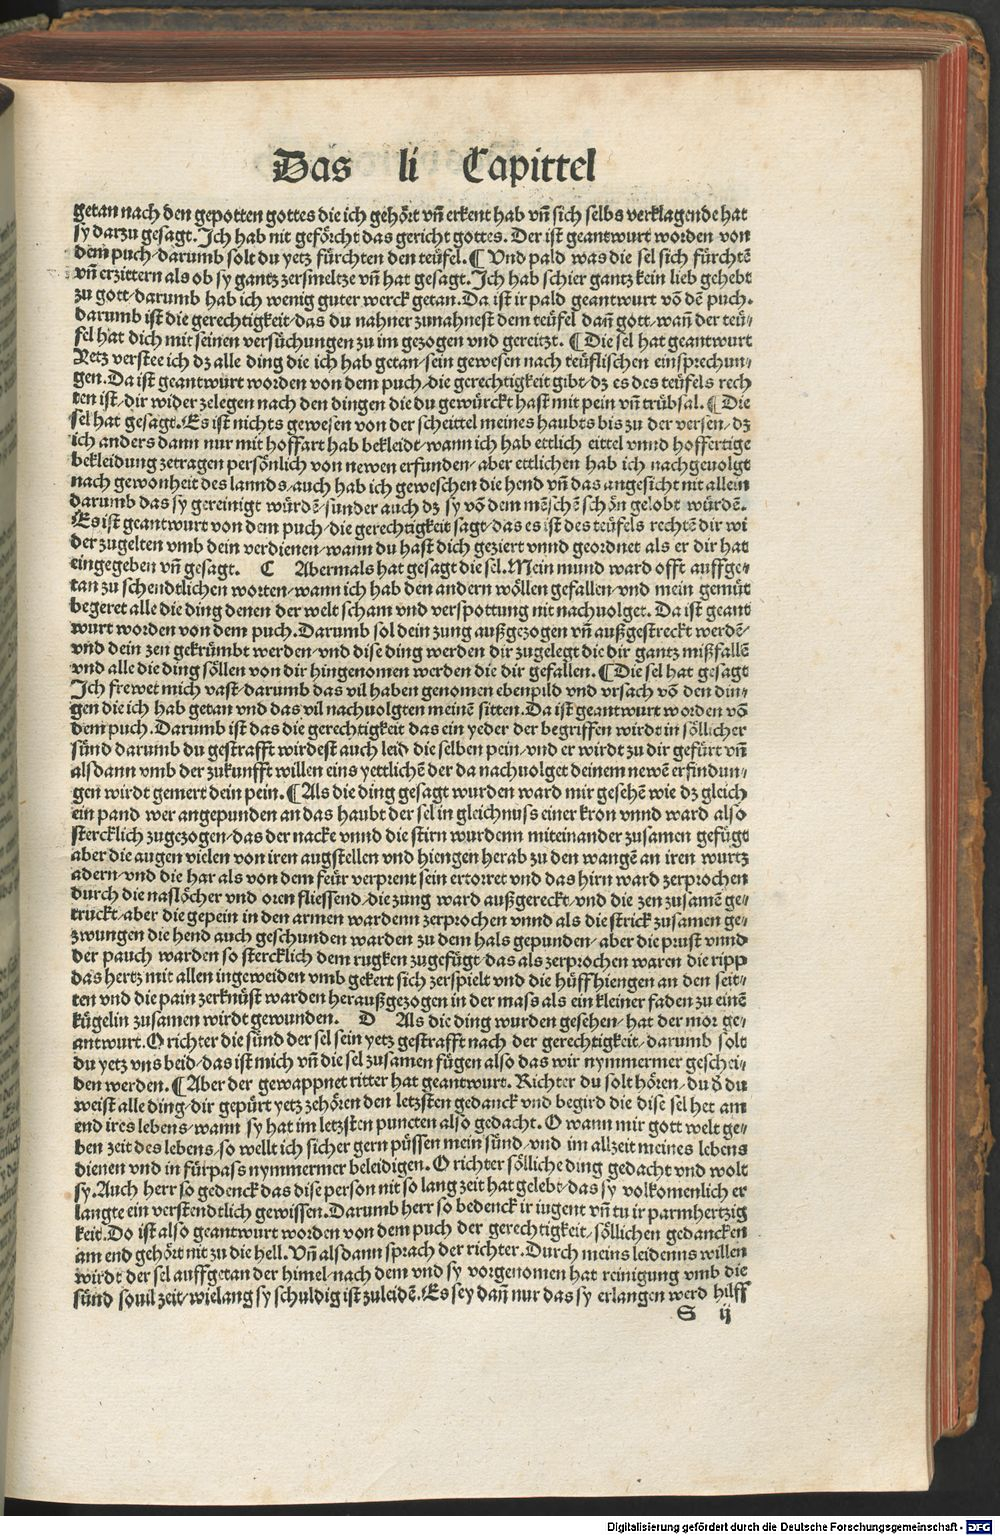 Das li Capittel
getan nach den gepotten gottes die ich gehört vñ erkent hab vñ sich selbs verklagende hat
sy darzu gesagt. Ich hab nit geförcht das gericht gottes. Der ist geantwurt worden von
dem puch/darumb solt du yetz fürchten den teüfel. ¶ Vnd pald was die sel sich fürchtē
vñ erzittern als ob sy gantz zersmeltze vñ hat gesagt. Ich hab schier gantz kein lieb gehebt
zu gott/darumb hab ich wenig guter werck getan. Da ist ir pald geantwurt vō dē puch.
darumb ist die gerechtigkeit/das du nahner zunahnest dem teüfel dañ gott/wañ der teü/
fel hat dich mit seinen versüchungen zu im gezogen vnd gereitzt. ¶ Die sel hat geantwurt
Yetz verstee ich dz alle ding die ich hab getan/sein gewesen nach teüflischen einsprechun/
gen. Da ist geantwürt worden von dem puch/die gerechtigkeit gibt/dz es des teüfels rech
ten ist/dir wider zelegen nach den dingen die du gewürckt hast mit pein vñ trübsal. ¶ Die
sel hat gesagt. Es ist nichts gewesen von der scheittel meines haubts bis zu der versen/dz
ich anders dann nur mit hoffart hab bekleidt/wann ich hab ettlich eittel vnnd hoffertige
bekleidung zetragen persönlich von newen erfunden/aber ettlichen hab ich nachgeuolgt
nach gewonheit des lannds/auch hab ich geweschen die hend vñ das angesicht nit allein
darumb das sy gereinigt würdē/sunder auch dz sy vō dem mēschē schön gelobt würdē.
Es ist geantwurt von dem puch/die gerechtigkeit sagt/das es ist des teüfels rechtē dir wi
der zugelten vmb dein verdienen/wann du hast dich geziert vnnd geordnet als er dir hat
eingegeben vñ gesagt. C Abermals hat gesagt die sel. Mein mund ward offt auffge/
tan zu schendtlichen worten/wann ich hab den andern wöllen gefallen/vnd mein gemüt
begeret alle die ding denen der welt scham vnd verspottung nit nachuolget. Da ist geant
wurt worden von dem puch. Darumb sol dein zung außgezogen vñ außgestreckt werdē/
vnd dein zen gekrümbt werden/vnd dise ding werden dir zugelegt die dir gantz mißfallē
vnd alle die ding söllen von dir hingenomen werden die dir gefallen. ¶ Die sel hat gesagt
Ich frewet mich vast/darumb das vil haben genomen ebenpild vnd vrsach vō den din/
gen die ich hab getan vnd das vil nachuolgten meinē sitten. Da ist geantwurt worden vō
dem puch. Darumb ist das die gerechtigkeit das ein yeder der begriffen wirdt in söllicher
sünd darumb du gestrafft wirdest auch leid die selben pein/vnd er wirdt zu dir gefürt vñ
alsdann vmb der zukunfft willen eins yettlichē der da nachuolget deinem newē erfindun/
gen wirdt gemert dein pein. ¶ Als die ding gesagt wurden ward mir gesehē wie dz gleich
ein pand wer angepunden an das haubt der sel in gleichnuss einer kron vnnd ward also
stercklich zugezogen/das der nacke vnnd die stirn wurdenn miteinander zusamen gefügt
aber die augen vielen von iren augstellen vnd hiengen herab zu den wangē an iren wurtz
adern/vnd die har als von dem feür verprent sein ertorret vnd das hirn ward zerprochen
durch die naslöcher vnd oren fliessend/die zung ward außgereckt/vnd die zen zusamē ge/
truckt/aber die gepein in den armen wardenn zerprochen vnnd als die strick zusamen ge/
zwungen die hend auch geschunden warden zu dem hals gepunden/aber die prust vnnd
der pauch warden so stercklich dem rugken zugefügt/das als zerprochen waren die ripp
das hertz mit allen ingeweiden vmb gekert sich zerspielt vnd die hüff hiengen an den seit/
ten vnd die pain zerknüst warden heraußgezogen in der mass als ein kleiner faden zu einē
kügelin zusamen wirdt gewunden. D Als die ding wurden gesehen/hat der mor ge/
antwurt. O richter die sünd der sel sein yetz gestrafft nach der gerechtigkeit/darumb solt
du yetz vns beid/das ist mich vñ die sel zusamen fügen also das wir nymmermer geschei/
den werden. ¶ Aber der gewappnet ritter hat geantwurt. Richter du solt hören/du d̕ du
weist alle ding/dir gepürt yetz zehören den letzsten gedanck vnd begird die dise sel het am
end ires lebens/wann sy hat im letzsten puncten also gedacht. O wann mir gott welt ge/
ben zeit des lebens/so wellt ich sicher gern püssen mein sünd/vnd im allzeit meines lebens
dienen vnd in fürpass nymmermer beleidigen. O richter sölliche ding gedacht vnd wolt
sy. Auch herr so gedenck das dise person nit so lang zeit hat gelebt/das sy volkomenlich er
langte ein verstendtlich gewissen. Darumb herr so bedenck ir iugent vñ tu ir parmhertzig
keit. Do ist also geantwurt worden von dem puch der gerechtigkeit/söllichen gedancken
am end gehört nit zu die hell. Vñ alsdann sprach der richter. Durch meins leidenns willen
wirdt der sel auffgetan der himel/nach dem vnd sy vorgenomen hat reinigung vmb die
sünd souil zeit/wielang sy schuldig ist zuleidē. Es sey dañ nur das sy erlangen werd hilff
S ij
Digitalisierung gefördert durch die Deutsche Forschungsgemeinschaft - DFG